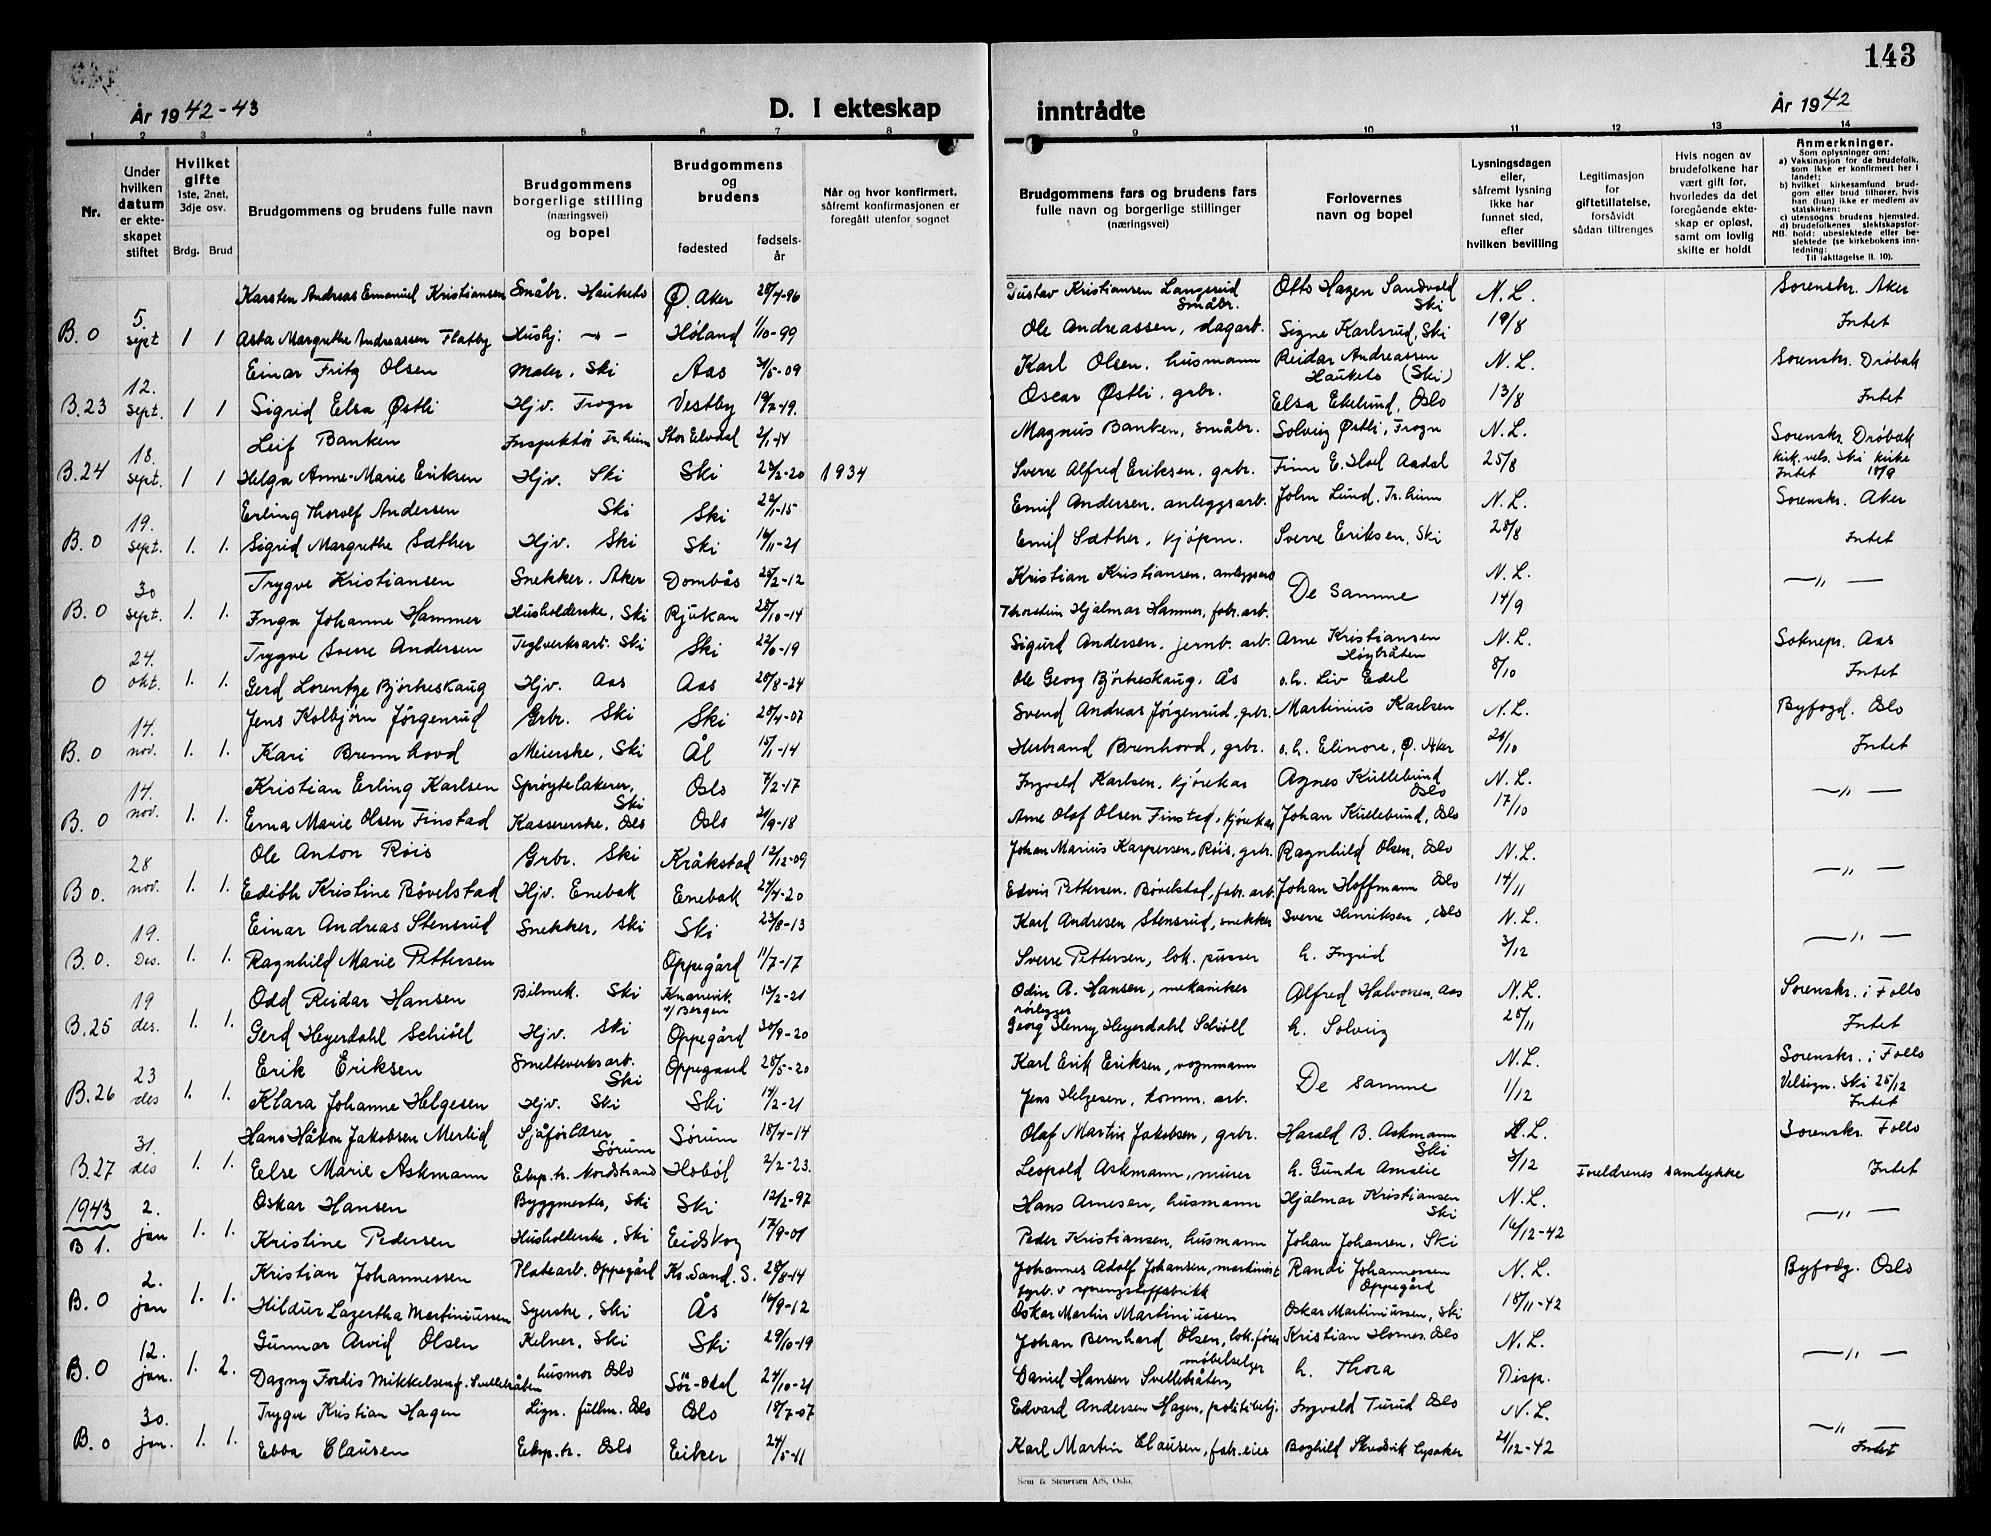 143
År 1942-43
D. I ekteskap inntrådte
År 1942
1 2 3 4 5 6 7 8 9 10 11 12 13 14
Nr.
Under hvilken datum er ekteskapet stiftet
Hvilket gifte
1ste, 2net, 3dje osv.
Brdg. Brud
Brudgommens og brudens fulle navn
Brudgommens borgerlige stilling (næringsvei) og bopel
Brudgommens og brudens
fødested
fødselsår
Når og hvor konfirmert, såfremt konfirmasjonen er foregått utenfor sognet
Brudgommens fars og brudens fars fulle navn og borgerlige stillinger (næringsvei)
Forlovernes navn og bopel
Lysningsdagen eller, såfremt lysning ikke har funnet sted, efter hvilken bevilling
Legitimasjon for giftetillatelse, forsåvidt sådan tiltrenges
Hvis nogen av brudefolkene har vært gift før, hvorledes da det foregående ekteskap er opløst, samt om lovlig skifte er holdt
Anmerkninger.
Som oplysninger om:
a) Vaksinasjon for de brudefolk, som ikke er konfirmert her i landet;
b) hvilket kirkesamfund brudgom eller brud tilhører, hvis han (hun) ikke er medlem av statskirken;
c) utensogns brudens hjemsted.
d) brudefolkenes slektskapsforhold: ubeslektede eller beslektede (se kirkebokens innledning:
NB.
Til iakttagelse II. 10).
Karsten Andreas Emanuel Kristiansen Småbr. Hauketo Ø. Aker 28/4-96 Gustav Kristiansen Langerud Småbr. Otto Hagen Sandvold Ski N.L. Sorenskr. Aker
B. 0 5. sept 1 1 Asta Margrethe Andreassen Flatby Hushj. -"- Høland 1/10-99 Ole Andreassen, dagarb. Signe Karlsrud, Ski 19/8 Intet
Einar Fritz Olsen Maler, Ski Aas 31/5-09 Karl Olsen, husmann Reidar Andreassen Hauketo (Ski) N.L. Sorenskr. Drøbak
B.23 12. sept. 1 1 Sigrid Elsa Østli Hjv. Frogn Vestby 19/2-19. Oscar Østli, grbr. Elsa Ekelund, Oslo 13/8 Intet
Leif Banken Inspektør Tr.heim Stor Elvdal 2/1-14 Magnus Banken, småbr. Solveig Østli, Frogn N.L. Sorenskr. Drøbak
B.24 18. sept. 1 1 Helga Anne-Marie Eriksen Hjv. Ski Ski 23/2-20 1934 Sverre Alfred Eriksen, grbr. Finn E. Hoel Aadal 25/8 Kirk. vels. Ski kirke Intet 18/9
Erling Thorolf Andersen Ski Ski 22/1-15 Emil Andersen, anleggsarb. John Lund, Tr.heim N.L. Sorenskr. Aker
B. 0 19. sept. 1. 1. Sigrid Margrethe Sæther Hjv. Ski Ski 16/11-21 Emil Sæther, kjøpm. Sverre Eriksen, Ski 28/8 Intet
Trygve Kristiansen Snekker, Aker Dombås 28/2-12 Kristian Kristiansen, anleggsarb De samme N.L. -"-
B. 0 30 sept. 1. 1. Inga Johanne Hammer Husholderske, Ski Rjukan 28/10-14 Thorstein Hjalmar Hammer, fabr.arb. 14/9
Trygve Sverre Andersen Teglverksarb. Ski Ski 22/0-19 Sigurd Andersen, jernb. arb. Arne Kristiansen Høybråten N.L. Soknepr. Aas
0 24. okt. 1. 1. Gerd Lorentze Bjørkeskaug Hjv. Aas Aas 20/8-24 Ole Georg Bjørkeskaug, Ås o.h. Liv Edel 8/10 Intet
Jens Kolbjørn Jørgenrud Grbr. Ski Ski 20/4-07 Svend Andreas Jørgenrud, grbr. Martinius Karlsen N.L. Byfogd. Oslo
B. 0 14. nov. 1. 1. Kari Brennhovd Meierske, Ski Ål 15/1-14 Herbrand Brenhovd, grbr. o.h. Elinore, Ø. Aker 20/10 Intet
Kristian Erling Karlsen Sprøytelakerer, Ski Oslo 7/2-17 Ingvald Karlsen, kjørekar Agnes Kullebund Oslo N.L. -"-
B. 0 14. nov. 1. 1. Erna Marie Olsen Finstad Kassererske, Oslo Oslo 21/9-18 Arne Olaf Olsen Finstad, kjørekar Johan Kullebund, Oslo 17/10
Ole Anton Røis Grbr. Ski Kråkstad 12/12-09 Johan Marius Kaspersen, Røis, grbr. Ragnhild Olsen, Oslo N.L. -"-
B 0. 28 nov. 1. 1. Edith Kristine Bøvelstad Hjv. Enebak Enebak 24/4-20 Edvin Pettersen Bøvelstad, fabr. arb. Johan Hoffmann Oslo 14/11
Einar Andreas Stensrud Snekker, Ski Ski 23/8-13 Karl Andresen Stensrud, snekker Sverre Hinriksen, Oslo N.L. -"-
B. 0. 19. Des. 1. 1. Ragnhild Marie Pettersen Oppegård 11/7-17 Sverre Pettersen, lok. pusser h. Ingrid 3/12
Odd Reidar Hansen Bilmek. Ski Knarrevik v/ Bergen 13/2-21 Odin A. Hansen, mekaniker Alfred Halvorsen, Aas N.L. Sorenskr. i Follo
B.25 19 des. 1. 1. Gerd Heyerdahl Schiøll Hjv. Ski Oppegård 30/9-20 rørlegger Georg Henry Heyerdahl Schiøll h. Solveig 28/11 Intet
Erik Eriksen Smelteverksarb. Ski Oppegaard 28/5-20 Karl Erik Eriksen, vognmann De samme N.L. Sorenskr. i Follo
B.26 23 des 1. 1. Klara Johanne Helgesen Hjv. Ski Ski 14/2-21 Jens Helgesen, komm. arb. 1/12 Velsign. Ski 25/12 Intet
Hans Håkon Jakobsen Merlid Sjåførlærer Sørum Sørum 18/4-14 Olaf Martin Jakobsen, grbr. Harald B. Askmann Ski N.L. Sorenskr. Follo
B.27 31. des 1. 1. Else Marie Askmann Eksp.tr. Nordstrand Hobøl 2/2-23. Leopold Askmann, murer h. Gunda Amalie 3/12 Foreldrenes samtykke Intet
1943 Oskar Hansen Byggmester, Ski Ski 12/2-97 Hans Arnesen, husmann Hjalmar Kristiansen Ski N.L. -"-
B 1. 2. jan 1. 1. Kristine Pedersen Husholderske, Ski Eidsvog 17/9-01 Peder Kristiansen, husmann Johan Johansen, Ski 16/12-42
Kristian Johannessen Platearb. Oppegård Kr.Sand. S. 20/8-14 Johannes Adolf Johansen, maskinist Randi Johannessen Oppegård N.L. Byfogd. Oslo
B. 0 2. jan 1. 1. Hildur Lagertha Martiniussen Syerske, Ski Ås 16/9-12 fyrb. v sprengstoffabrikk Oskar Martin Martiniussen Oskar Martiniussen, Ski 18/11-42
Gunnar Arvid Olsen Kelner, Ski Ski 29/10-19 Johan Bernhard Olsen, lok.fører Kristian Hornes, Oslo N.L. -"-
B. 0 12. jan. 1. 2. Dagny Fordis Mikkelsen f. Svellebråten husmor Oslo Sör-Odal 24/10-21 møbelselger Daniel Hansen Svellebråten, h. Thora Disp.
Trygve Kristian Hagen Lign. fullm. Oslo Oslo 18/7-07 Edvard Andersen Hagen, politibetj. Ingvald Turud Oslo N.L. -"-
B. 0 30. jan. 1. 1. Ebba Clausen Eksp.tr. Oslo Eiker 24/5-11 Karl Martin Clausen, fabr.eier Boghild Skredsvik Lysaker 21/12-42 Intet
Sem & Stenersen A/S, Oslo.